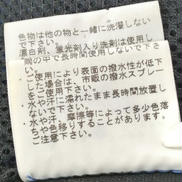 色物は他の物と一緒に洗濯しない
で下さい。
漂白剤、蛍光剤入り洗剤は使用し
ないで下さい。
雨の中で長時間使用しないで下さ
い。
ご使用により表面の撥水性が低下
した場合は、市販の撥水スプレー
をご使用下さい。
水や汗に濡れたまま長時間放置し
ないで下さい。
水や汗、摩擦等によって多少色落
ちや色移りすることがあります。
ご注意下さい。